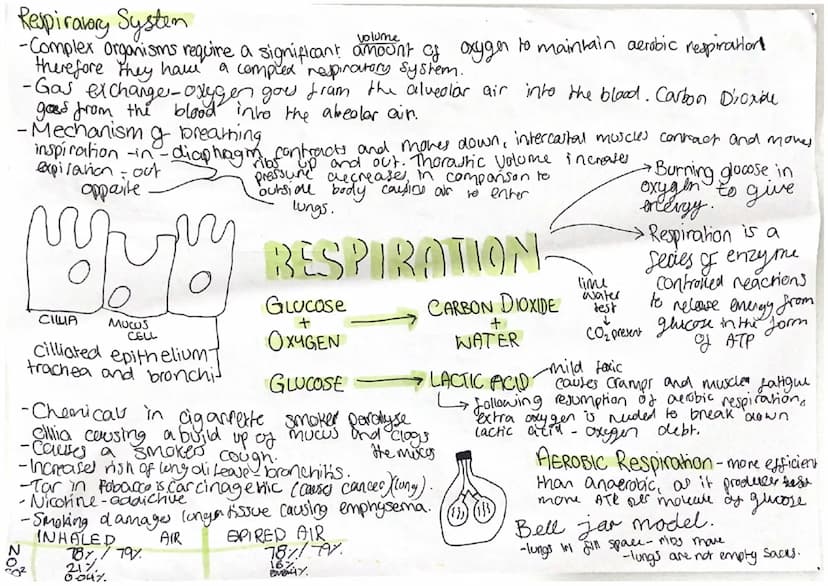 Respiratory System
-Complex organisms require a significant amount of oxygen to maintain aerobic respiration
volume
therefore they have a complex respiratory system.
-Gas exchange-oxygen goes from the alveolar air into the blood. Carbon Dioxide
goes from the blood into the alveolar air.
-Mechanism of breathing
inspiration-in-diaphragm contracts and moves down, intercostal muscles contract and moves
ribs up and out. Thorastic volume increases
expiration-out
opposite
pressure decreases in comparison to
outside body causing air to enter
lungs.
Burning glucose in
oxygen to give
energy.
Respiration is a
series of enzyme
controlled reactions
to release energy from
glucose in the form
of ATP
RESPIRATION
lime
water
test
CO2 present
GLUCOSE
+
OXYGEN
CARBON DIOXIDE
+
WATER
CILLIA
MUCUS
CELL
cilliated epithelium
trachea and bronchi
GLUCOSE
LACTIC ACID
mild toxic
causes cramps and muscle fatigue
following resumption of aerobic respiration,
extra oxygen is needed to break down
lactic acid - oxygen debt.
-Chemicals in cigarette smoke paralyse
cillia causing a build up of mucus and clogs
the mucus
-Causes a smokers cough.
-Increases risk of lung disease-bronchitis.
-Tar in tobacco is carcinagenic (causes cancer)(lung).
-Nicotine-addictive
-Smoking damages lunger tissue causing emphysema.
AEROBIC Respiration - more efficient
than anaerobic, as it produces
more ATP per molecule of glucose
Bell jar model.
-lungs in fill space - ribs move
-lungs are not empty sacks.
INHALED AIR
EXPIRED AIR
N 78%/79% 78%/79%
O2 21% 16%
CO2 0.04%